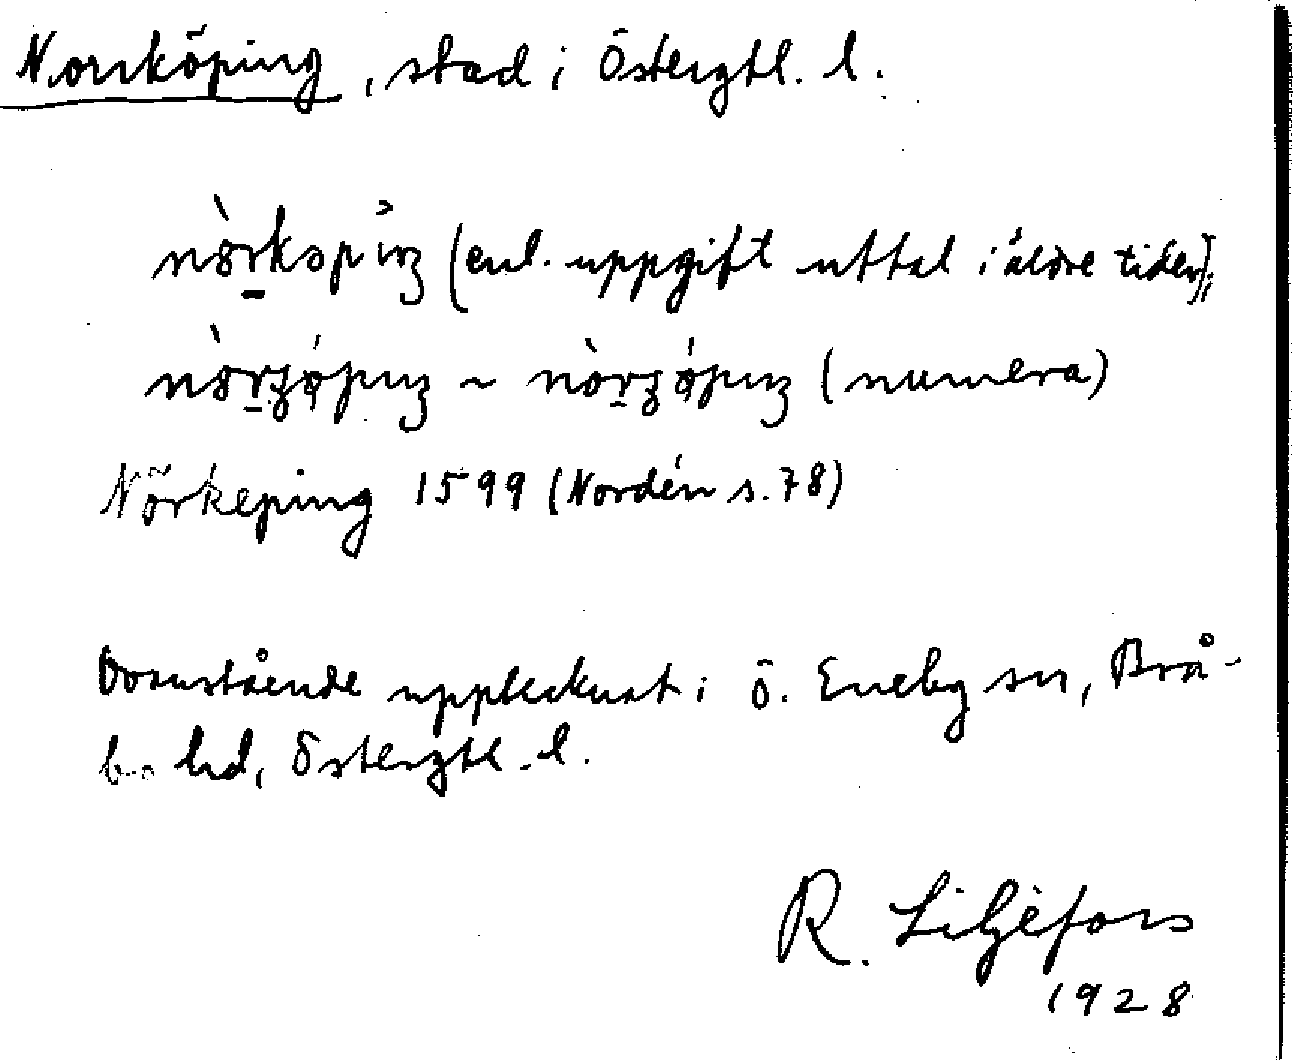 Norrköping, stad i Östergtl. l.
nòrkopiŋ (enl. uppgift uttal i äldre tider);
~ (numera)
Nörkeping 1599 (Nordén s. 78)
Ovanstående upptecknat i Ö. Eneby sn, Brå-
bo hd, Östergtl. l.
R. Liljefors
1928